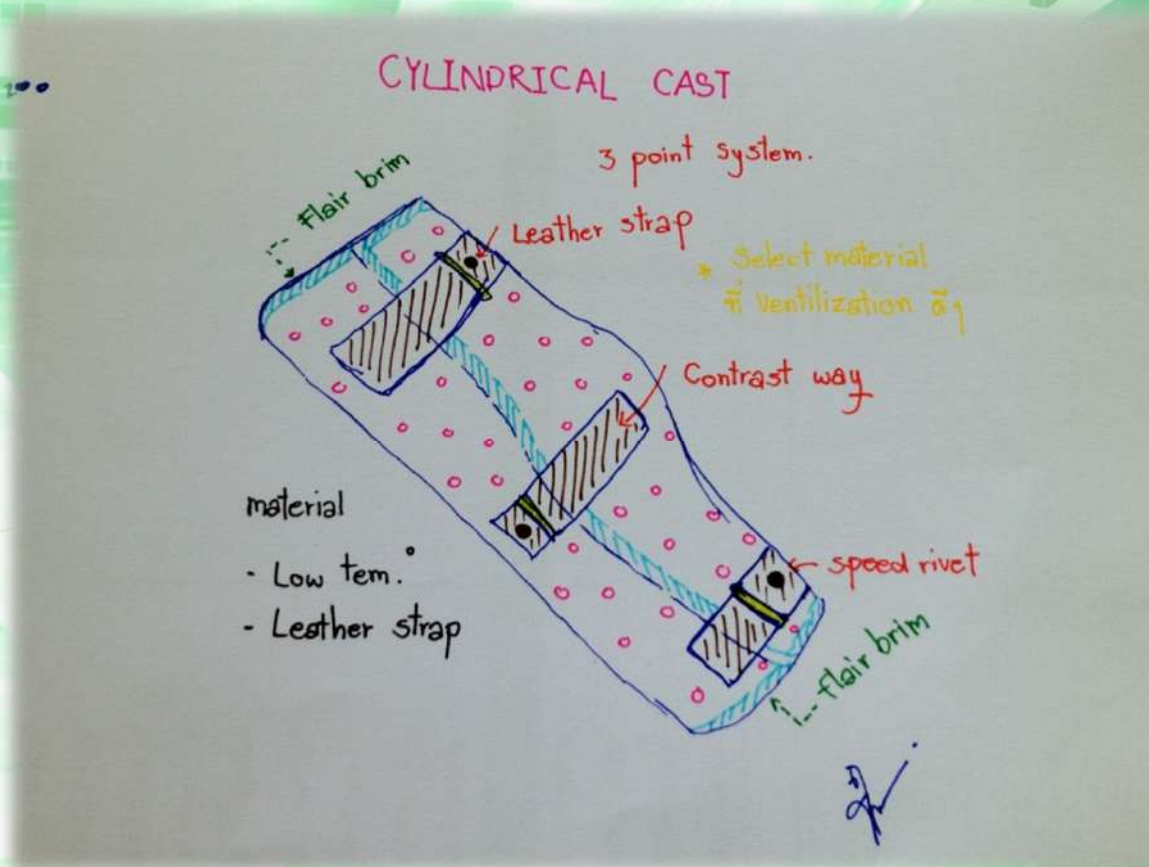 CYLINDRICAL CAST
3 point system.
Flair brim
Leather strap
* Select material
ที่ ventilization ดีๆ
Contrast way
material
- Low tem.°
- Leather strap
speed rivet
flair brim